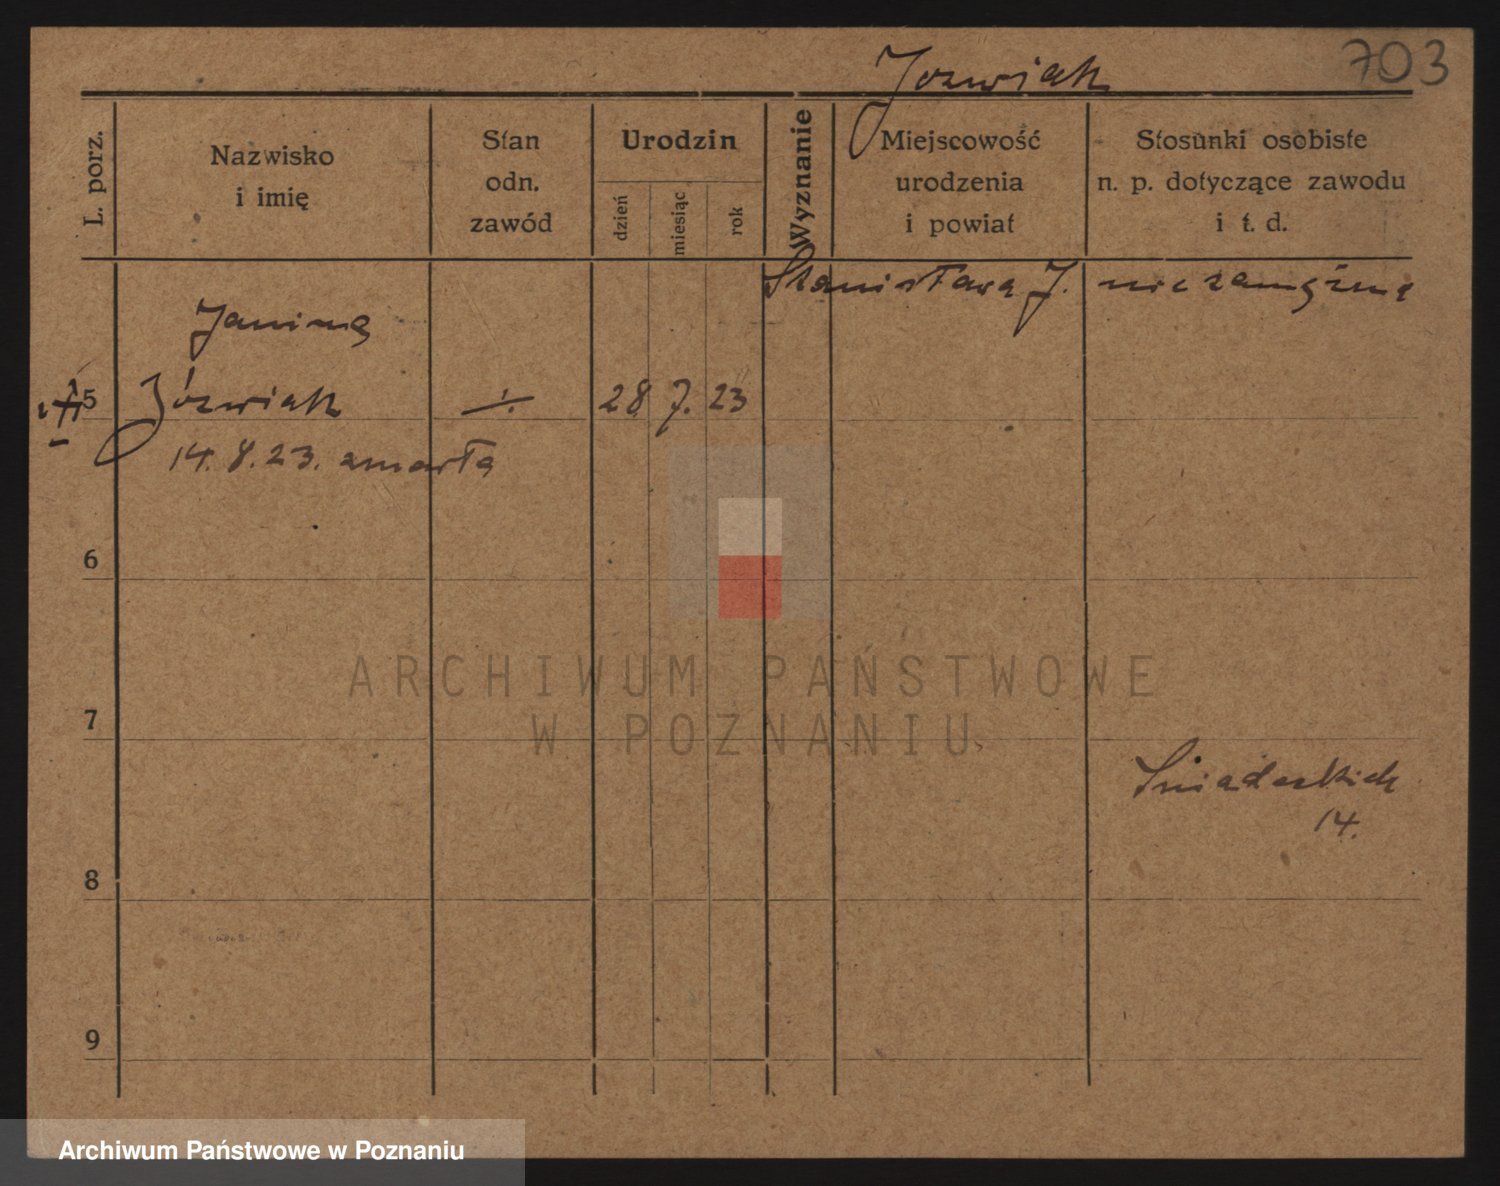 Jozwiak
703
L. porz.
Nazwisko
i imię
Stan
odn.
zawód
Urodzin
dzień
miesiąc
rok
Wyznanie
Miejscowość
urodzenia
i powiat
Stosunki osobiste
n. p. dotyczące zawodu
i t. d.
Stanisława J. niezamężna
Janina
5 Józwiak ·/. 28 7. 23
14. 8. 23. zmarła
6
7
Śniadeckich
14.
8
9
ARCHIWUM PAŃSTWOWE
W POZNANIU
Archiwum Państwowe w Poznaniu